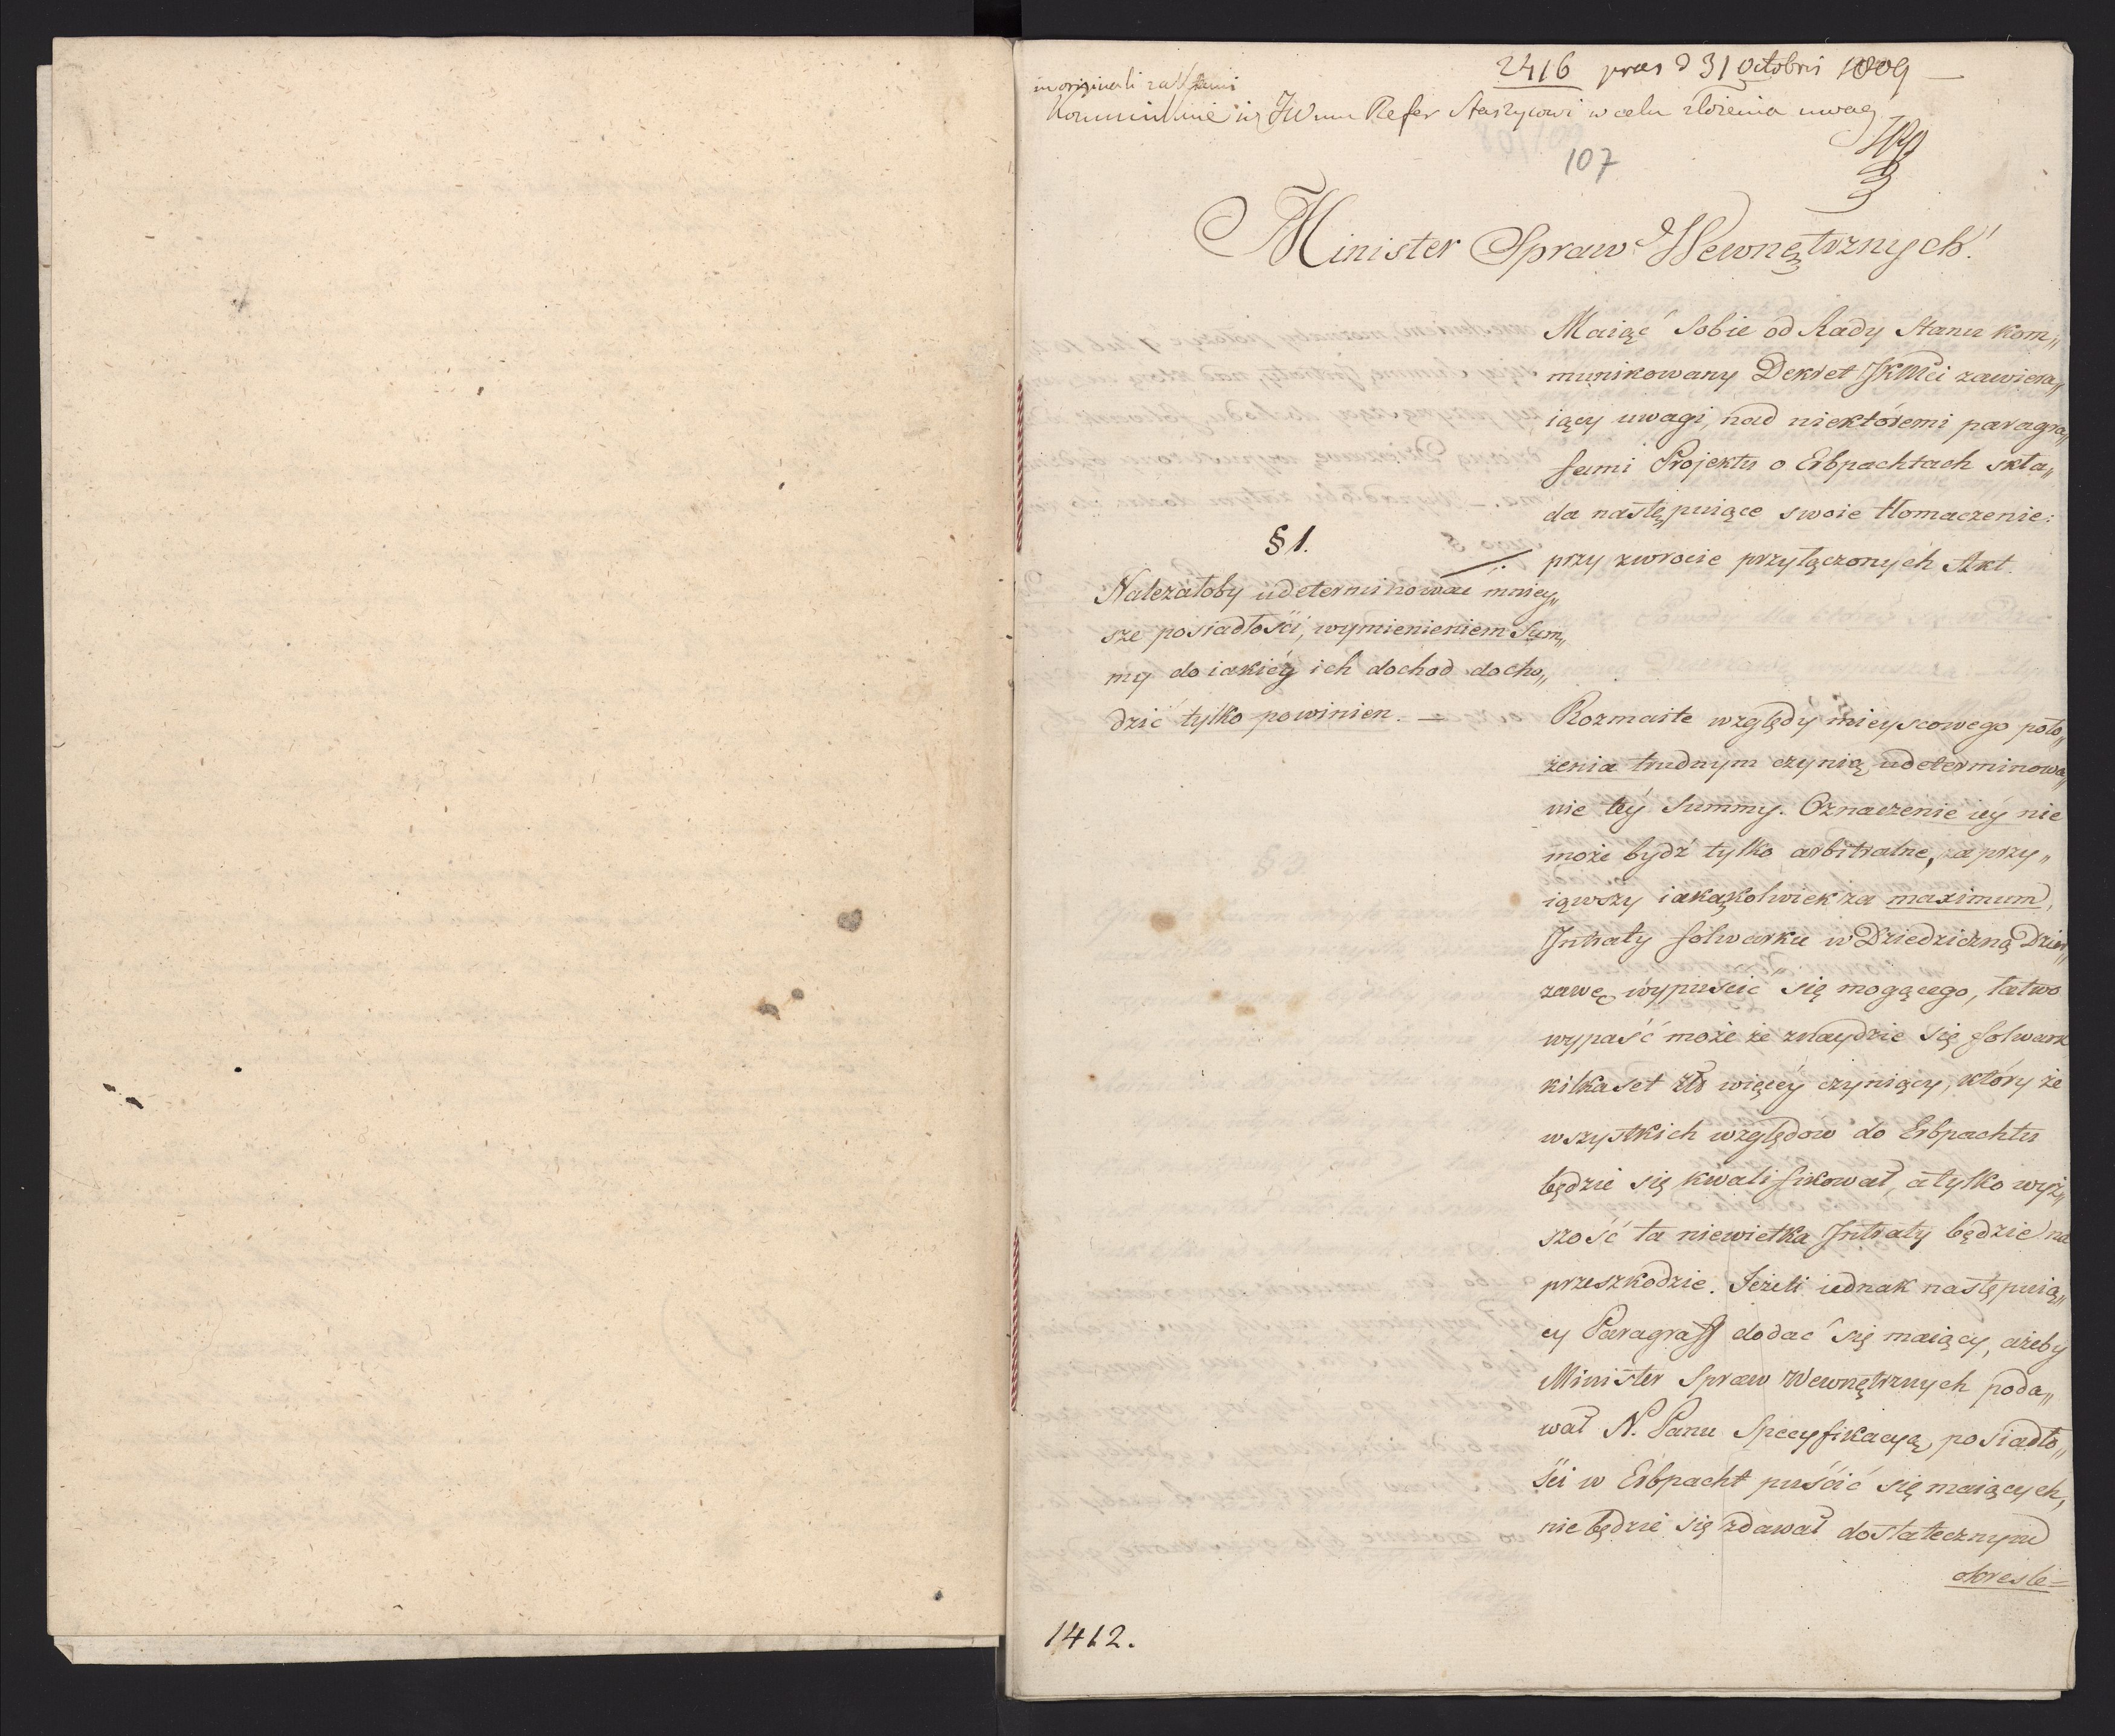 2416 pras d 31 Octobris 1809 —
in originali
JW nu Refer Staszycowi w celu złożenia uwag
107
Minister Spraw Wewnętrznych!
Maiąc sobie od Rady Stanu kom„
munikowany Dekret JKMci zawiera„
iący uwagi, nad niektóremi paragra„
fami Projektu o Erbpachtach skła„
da następuiące swoie tłomaczenie:
⁒ przy zwrocie przyłączonych Akt.
§ 1.
Należałoby udeterminować mniey„
sze posiadłości, wymienieniem Sum„
my do iakiéy ich dochod docho„
dzić tylko powinien. —
Rozmaite względy mieyscowego poło„
żenia trudnym czynią udeterminowa„
nie téy Summy. Oznaczenie iéy nie
może bydź tylko arbitralne, a przy„
iąwszy iakąkolwiek za maximum,
Intraty folwarku w Dziedziczną Dzier„
żawę wypuścić się mogącego, łatwo
wypaść może że znaydzie się folwark
kilkaset Złł więcéy czyniący, który ze
wszystkich względow do Erbpachtu
będzie się kwalifikował, a tylko wyż„
szość ta niewielka Intraty będzie na
przeszkodzie. Jeżeli iednak następuią„
cy Paragraff dodać się maiący, ażeby
Minister Spraw Wewnętrznych poda„
wał N. Panu Specyfikacyą, posiadło„
ści w Erbpacht puścić się maiących,
nie będzie się zdawał dostatecznym
określe=
1412.